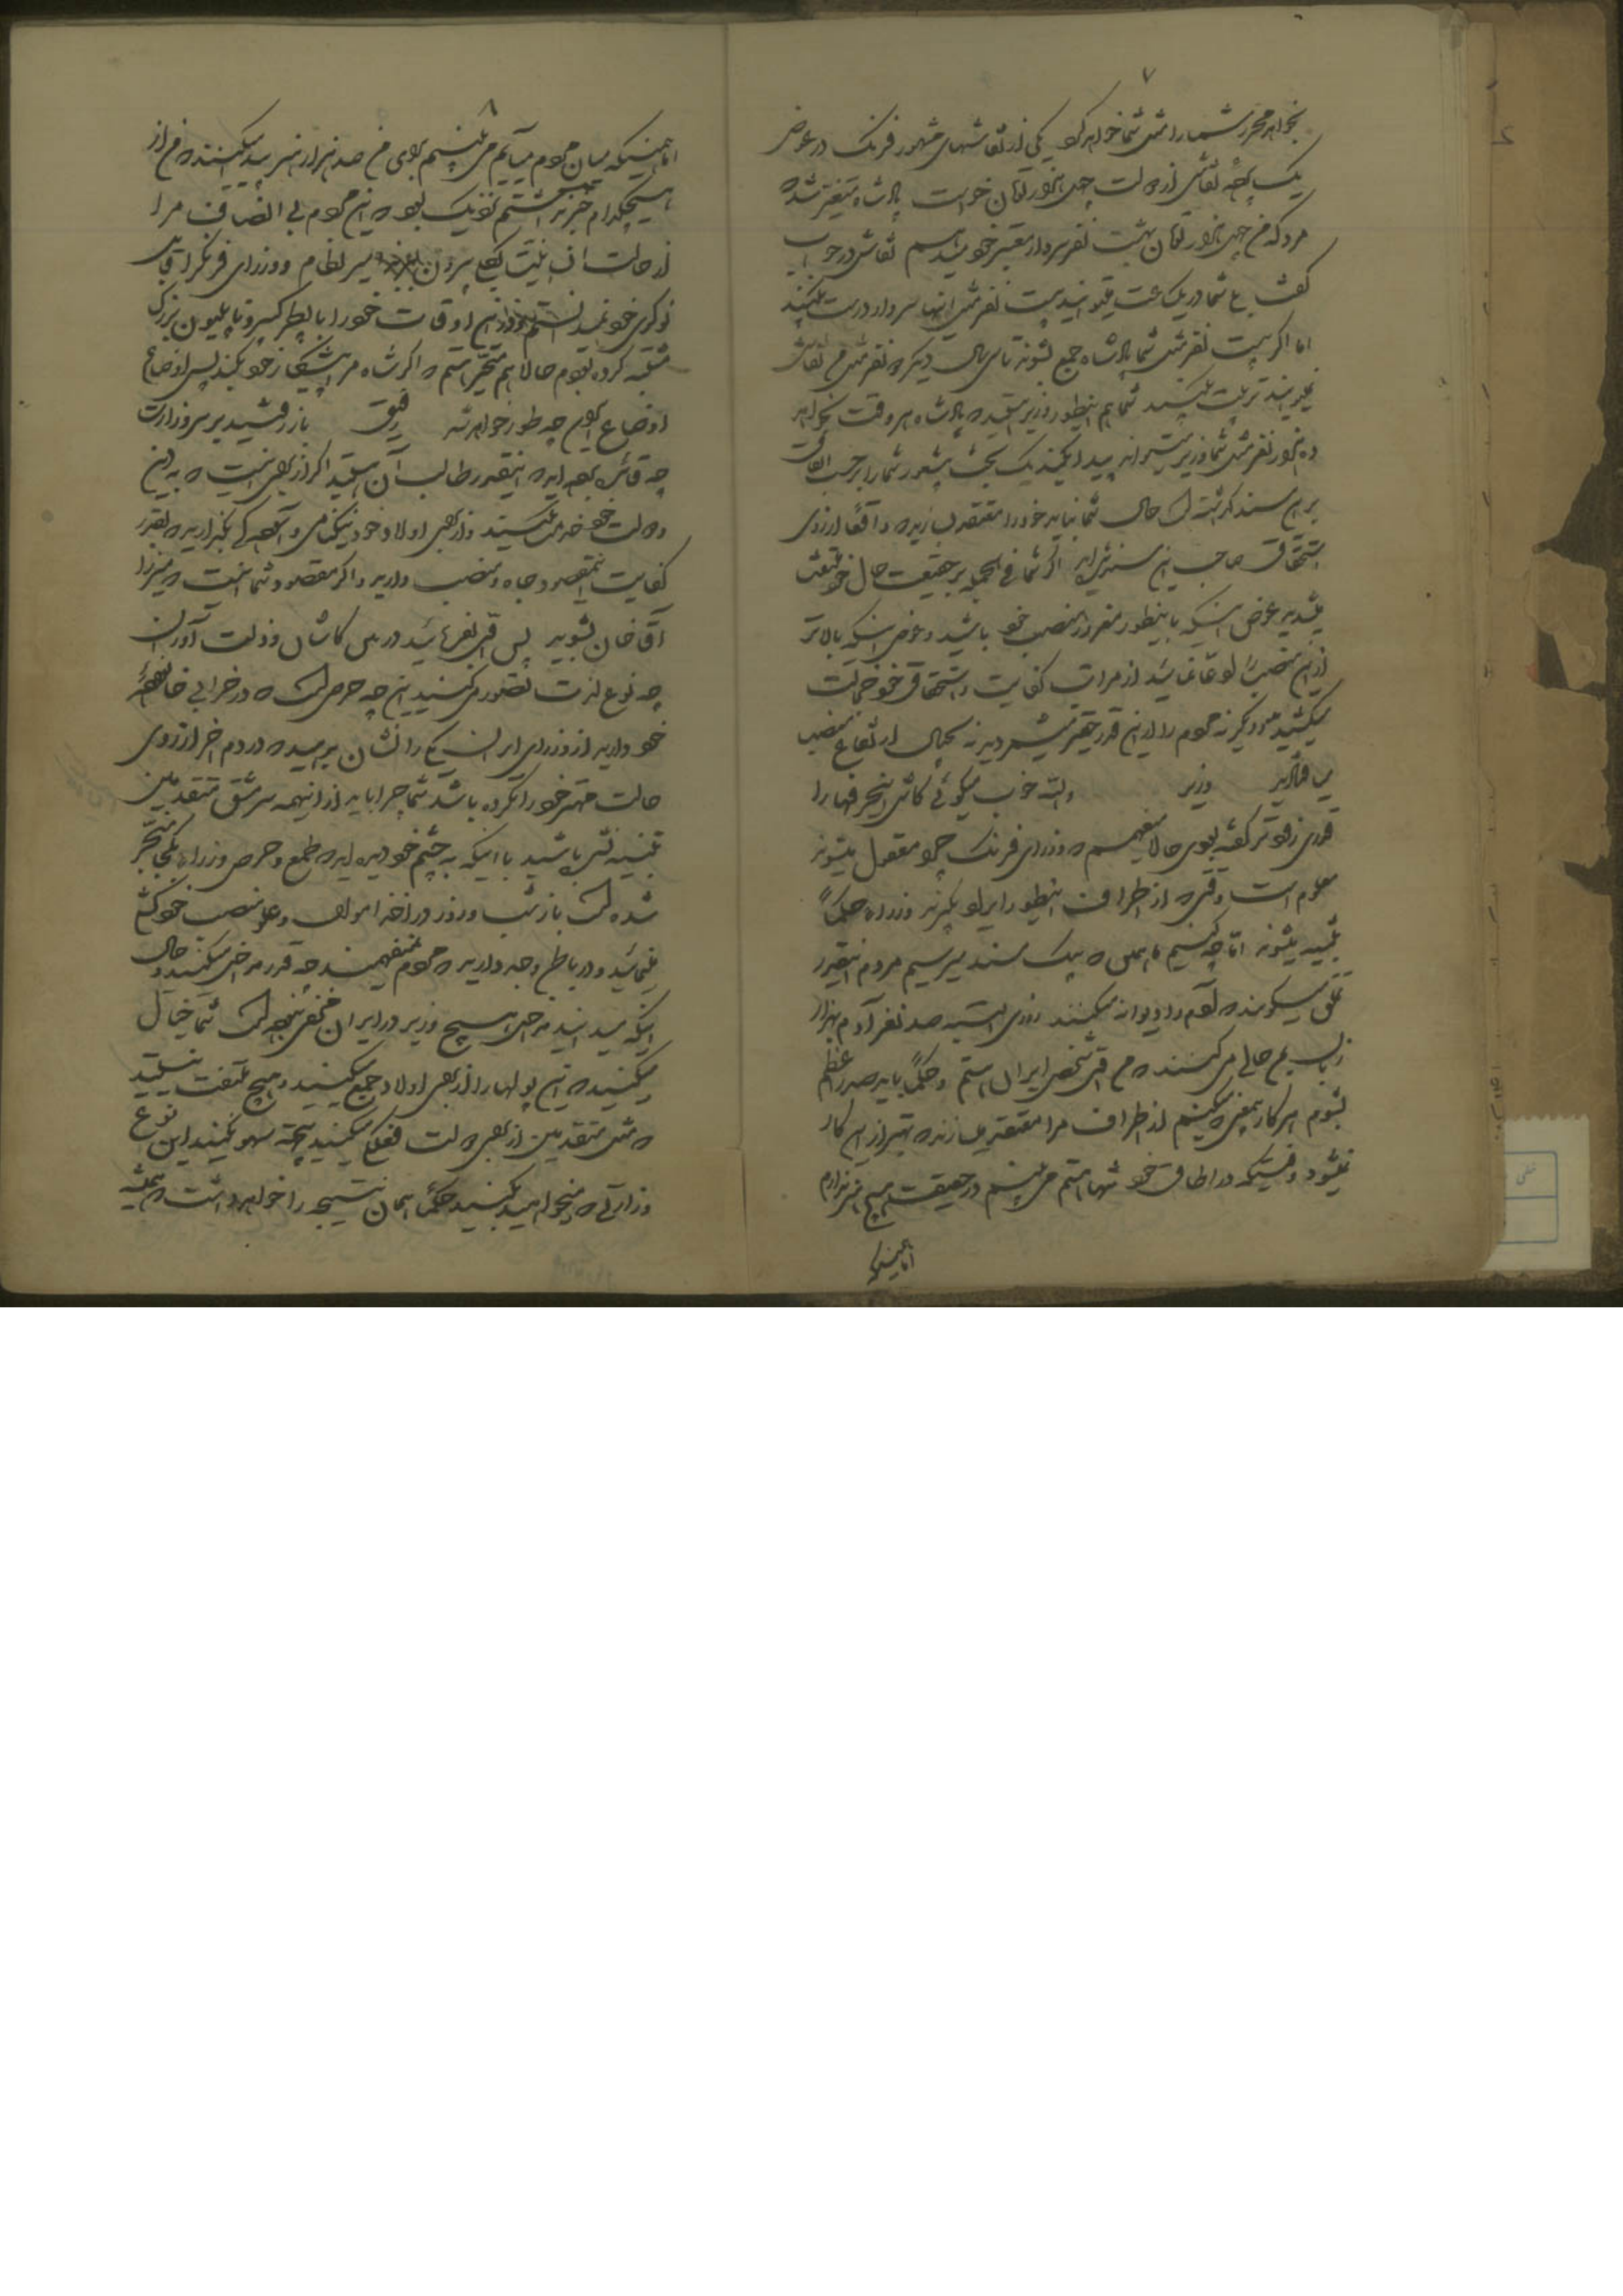 ۷
بخواهد محرر شما را مثل شما خواهد کرد یکی از نقاشهای مشهور فرنگ در عوض
یک پرده نقاشی از دولت چهل هزار تومان خواست پادشاه متغیر شده
مردکه من چهل هزار تومان به بیست نفر سردار معتبر خود میدهم نقاش در جواب
گفت بلی شما در یک ساعت میتوانید بیست نفر مثل اینها سردار درست بکنید
اما اگر بیست نفر مثل شما پادشاه جمع بشوند تا سی سال دیگر یک نفر مثل من نقاش
نمیتوانند تربیت بکنند شما هم اینطور وزیر هستید که پادشاه هر وقت بخواهد
ده هزار نفر مثل شما وزیر میتواند پیدا بکند یک بخت بیشعور شما را بر حسب اتفاق
بر این مسند گذاشته است حال شما نباید خود را معتقد سازید که واقعا از روی
استحقاق صاحب این مسند شده‌اید اگر شما فی الجمله بر حقیقت حال خود ملتفت
میشدید عوض اینکه باینطور مغرور منصب خود باشید و عوض اینکه بالاتر
از این منصب را ادعا نمائید از مراتب کفایت و استحقاق خود خجالت
میکشیدید و دیگر نه مردم را از این قدر حقیر میشمردید نه بخیال ارتفاع منصب
می افتادید وزیر والله خوب میگوئی کاش این حرفها را
قدری زودتر گفته بودی حالا میفهمم که وزرای فرنگ چرا معقول میشوند
معلوم است وقتی که از اطراف اینطور ایراد بگیرند وزراء حکماً
تنبیه میشوند اما چه کنیم ما همین که بیک مسند میرسیم مردم اینقدر
تملق میگویند که آدم را دیوانه میکنند روزی البته صد نفر آدم بهزار
زبان بمن حالی می کنند که من اول شخص ایران هستم و حکماً باید صدر اعظم
بشوم هر کار بیمعنی که میکنم از اطراف مرا معتقد میسازند که بهتر از این کار
نمیشود وقتیکه در اطاق خود تنها هستم می بینم در حقیقت هیچ هنر ندارم
اما همینکه
۸
اما همینکه میان مردم میآیم می بینم برای من صد هزار هنر پیدا میکنند که من از
هیچکدام خبر نداشتم نزدیک بود که این مردم بی انصاف مرا
از حالت انسانیت بکلی بیرون ببرند میر نظام و وزرای فرنگ را قابل
نوکری خود نمیدانستم و از این اوقات خود را با پطر کبیر و ناپلیون بزرگ
مشتبه کرده بودم حالا هم متحیر هستم که اگر شاه مرا پیشکار خود بکند پس اوضاع
اوضاع ایران چه طور خواهد شد رفیق باز رفتید بر سر وزارت
چه فایده برده‌اید که اینقدر طالب آن هستید اگر از برای ملت است که به دین
دولت خود خدمت میکنید و از برای اولاد خود نیکنامی و آسودگی بگذارید که بقدر
کفایت مقصود جاه و منصب دارید و اگر مقصود شما اینست که میرزا
آقا خان بشوید پس قدری بفرمائید در پس کاشان و ذلت آوردن
چه نوع لذت تصور می کنید این چه حرص است که در خرابی خانه
خود دارید از وزرای ایران یکی را نشان بدهید که در دم آخر آرزوی
حالت مهتر خود را نکرده باشد شما چرا باید از اینهمه سرمشق متقدمین
تنبیه نشده باشید با اینکه به چشم خود دیده اید که طمع و حرص وزراء بکجا منجر
شده است باز شب و روز در اخذ اموال و علو منصب خود کوشش
مینمائید و در باطن وجد دارید که مردم نمیفهمند چه قدر مداخل میکنید و حال
اینکه میدانید مداخل هیچ وزیر در ایران مخفی نبوده است شما خیال
میکنید که این پولها را از برای اولاد جمع میکنید و هیچ ملتفت نیستید
که مثل متقدمین از برای دولت فعلگی میکنید البته سهو نکنید این نوع
وزارتی که میخواهید بکنید حکماً همان نتیجه را خواهد داشت که همیشه